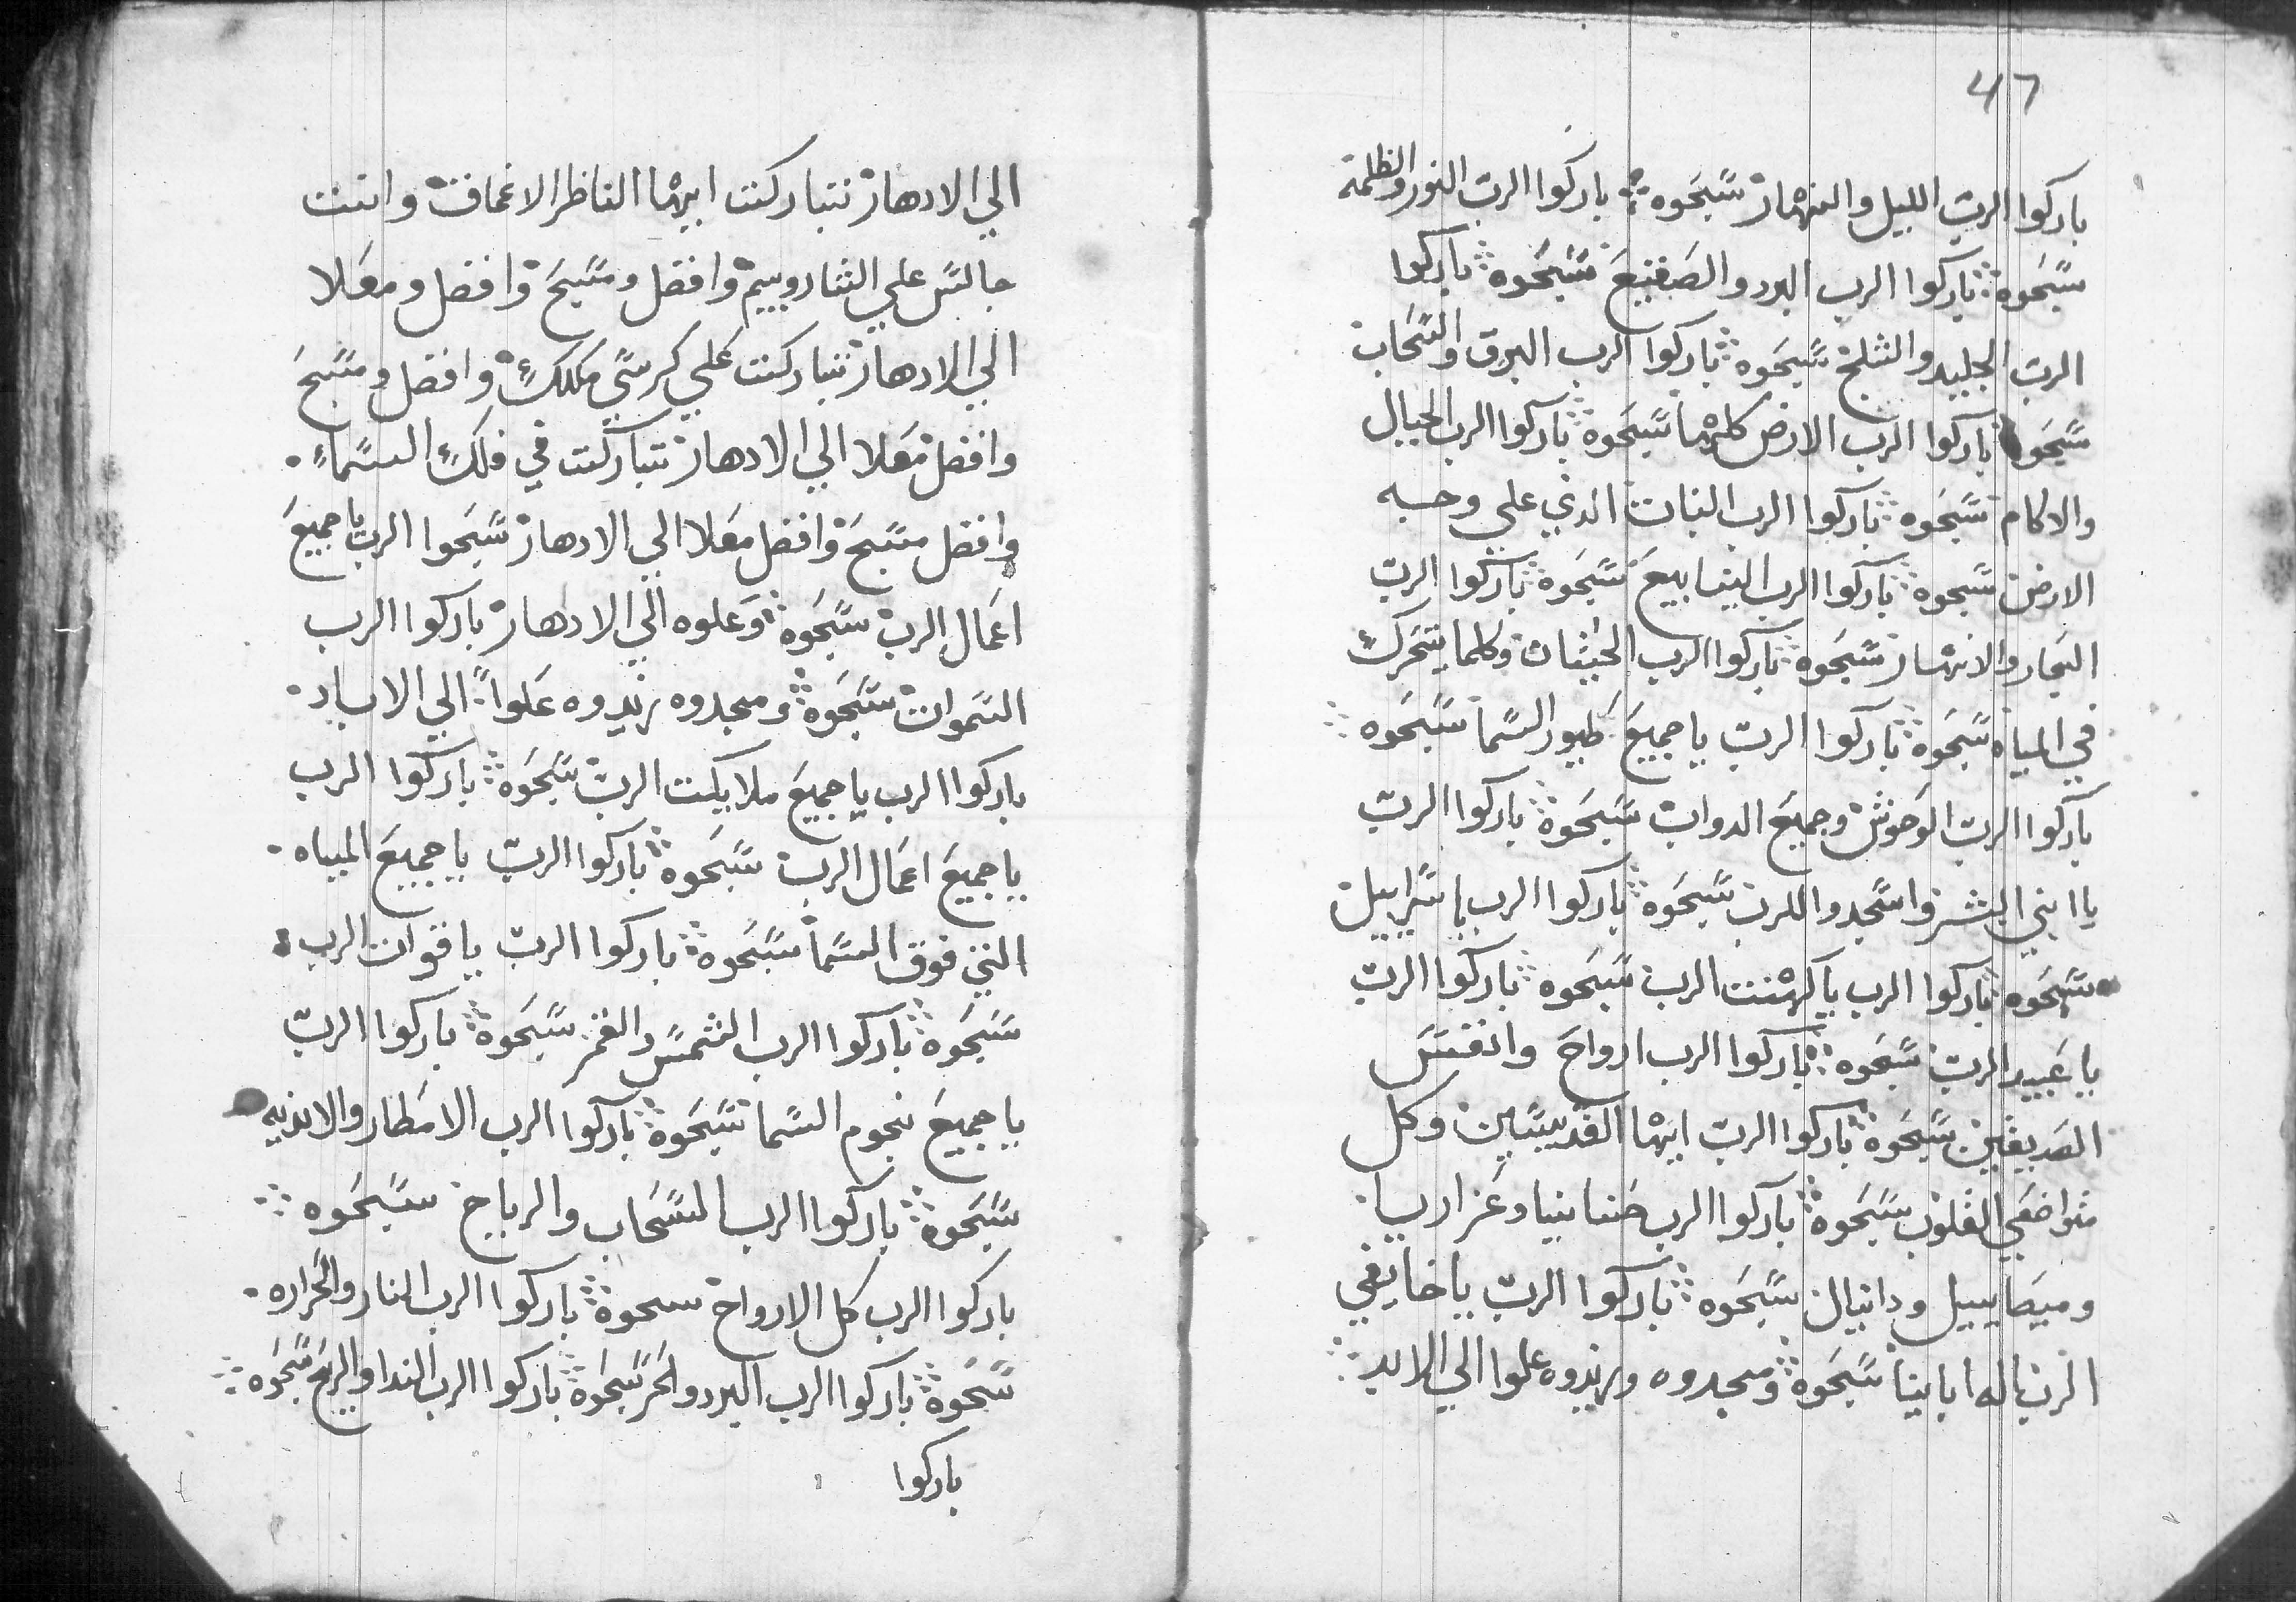 الي الادهار تتباركت ايها الناظر الاغماق وانت
جالس علي الشاروبيم وافضل ومسبح وافضل ومعلا
الي الادهار تتباركت علي كرسي ملكك وافضل ومسبح
وافضل معلا الي الادهار تتباركت في فلك السماء
وافضل مسبح وافضل معلا الي الادهار سبحوا الرب ياجميع
اعمال الرب سبحوه وعلوه الي الادهار باركوا الرب
السموات سبحوه ومجدوه زيدوه علوا الي الاباد
باركوا الرب ياجميع ملايكت الرب سبحوه باركوا الرب
ياجميع اعمال الرب سبحوه باركوا الرب ياجميع المياه
التي فوق السما سبحوه باركوا الرب ياقوات الرب
سبحوه باركوا الرب الشمس والقمر سبحوه باركوا الرب
ياجميع نجوم السما سبحوه باركوا الرب الامطار والانديه
سبحوه باركوا الرب السحاب والرياح سبحوه
باركوا الرب كل الارواح سبحوه باركوا الرب النار والحراره
سبحوه باركوا الرب البرد والحر سبحوه باركوا الرب الندا والريح سبحوه
باركوا
47
باركوا الرب الليل والنهار سبحوه باركوا الرب النور والظلمه
سبحوه باركوا الرب البرد والصقيع سبحوه باركوا
الرب الجليد والثلج سبحوه باركوا الرب البرق والسحاب
سبحوه باركوا الرب الارض كلها سبحوه باركوا الرب الجبال
والاكام سبحوه باركوا الرب النبات الذي علي وجه
الارض سبحوه باركوا الرب الينابيع سبحوه باركوا الرب
البحار والانهار سبحوه باركوا الرب الحيتان وكلما يتحرك
في المياه سبحوه باركوا الرب ياجميع طيور السما سبحوه
باركوا الرب الوحوش وجميع الدواب سبحوه باركوا الرب
يا ابني البشر واسجدوا للرب سبحوه باركوا الرب ياسراييل
سبحوه باركوا الرب ياكهنت الرب سبحوه باركوا الرب
ياعبيد الرب سبحوه باركوا الرب ارواح وانفس
الصديقين سبحوه باركوا الرب ايها القديسيين وكل
متواضعي القلوب سبحوه باركوا الرب حننانيا وعزاريا
وميصاييل ودانيال سبحوه باركوا الرب ياخايفي
الرب اله اباينا سبحوه ومجدوه وزيدوه علوا الي الابد